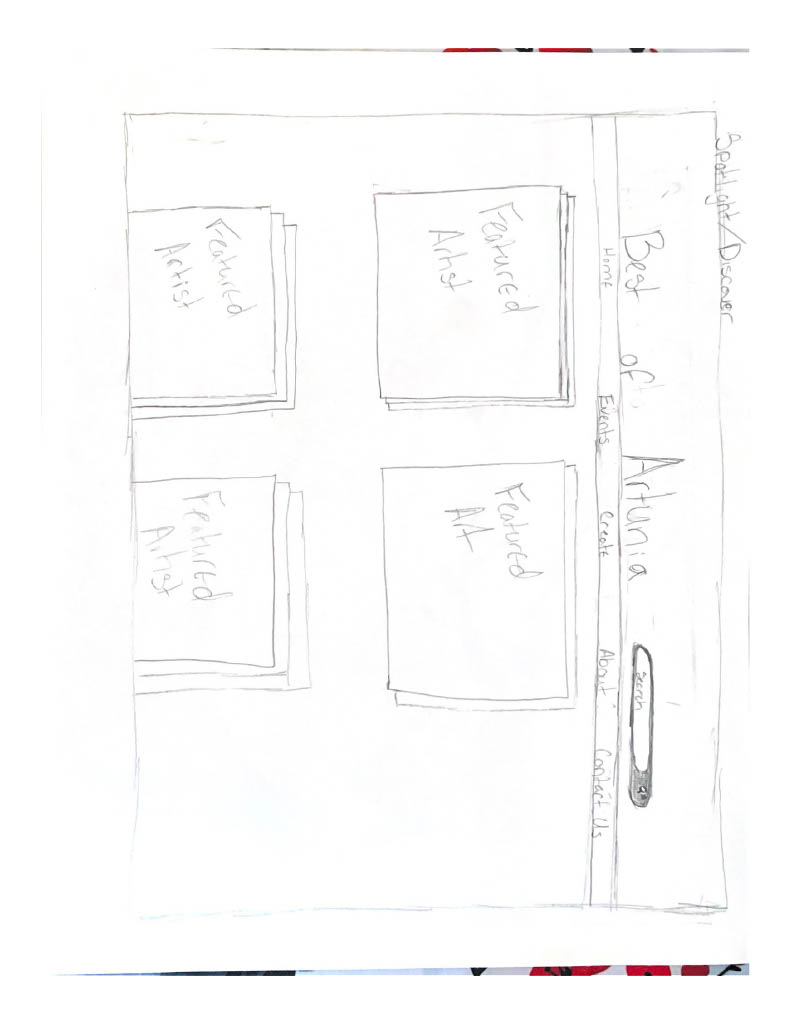 Spotlight/Discover
Best of Artunia
Search
Home Events Create About Contact Us
Featured
Artist
Featured
Art
Featured
Artist
Featured
Artist